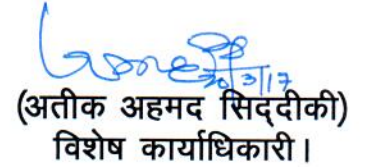 30/3/17
(अतीक अहमद सिद्दीकी)
विशेष कार्याधिकारी।